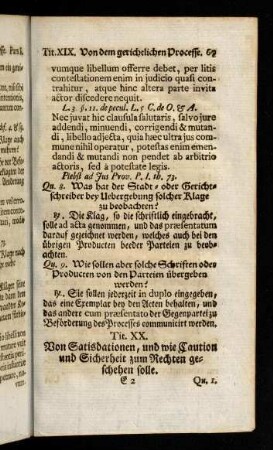 Tit. XIX. Von dem gerichtlichen Processe. 69
vumque libellum offerre debet, per litis
contestationem enim in judicio quasi con-
trahitur, atque hinc altera parte invita
actor discedere nequit.
L. 3. §. 11. de pecul. L. 5 C. de O. & A.
Nec juvat hic clausula salutaris, salvo jure
addendi, minuendi, corrigendi & mutan-
di, libello adjecta, quia hæc ultra jus com-
mune nihil operatur, potestas enim emen-
dandi & mutandi non pendet ab arbitrio
actoris, sed à potestate legis.
ad Jus Prov. P. I. th. 73.
Qu. 8. Was hat der Stadt- oder Gericht-
schreiber bey Uebergebung solcher Klage
zu beobachten?
Die Klag, so die schriftlich eingebracht,
solle ad acta genommen, und das præsentatum
darauf gezeichnet werden, welches auch bey den
übrigen Producten beeder Parteien zu beob-
achten.
Qu. 9. Wie sollen aber solche Schriften oder
Producten von den Parteien übergeben
werden?
Sie sollen jederzeit in duplo eingegeben,
das eine Exemplar bey den Acten behalten, und
das andere cum præsentato der Gegenpartei zu
Beförderung des Processes communicirt werden.
Tit. XX.
Von Satisdationen, und wie Caution
und Sicherheit zum Rechten ge-
schehen solle.
E 2 Qu. 1.